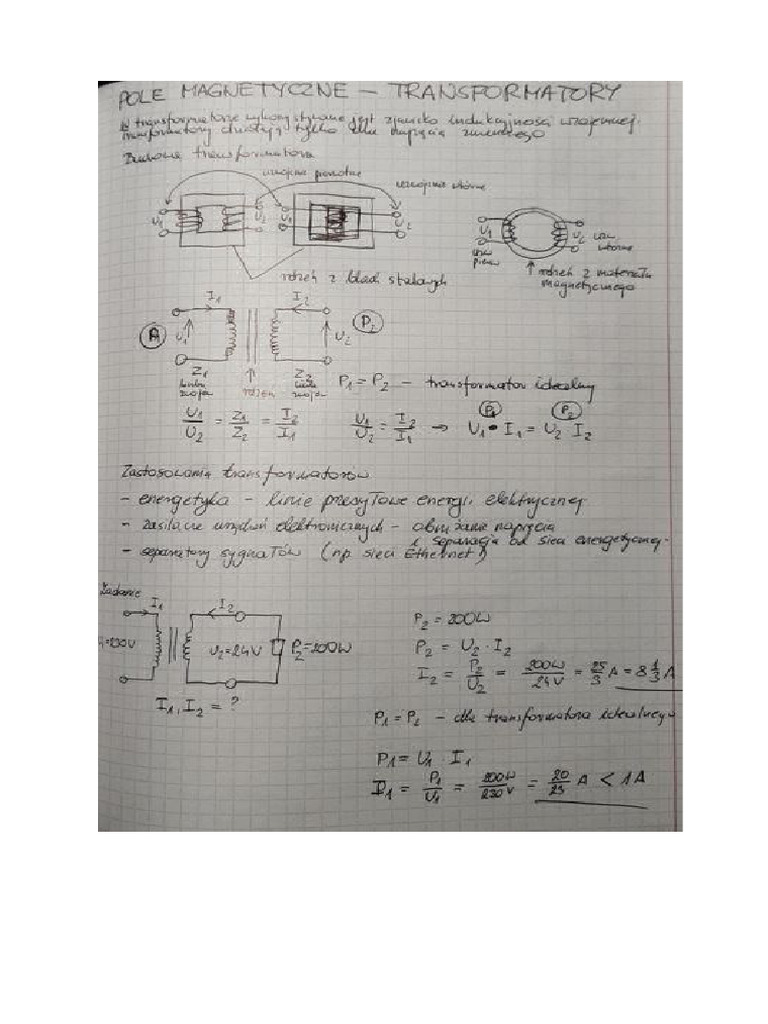 POLE MAGNETYCZNE – TRANSFORMATORY
W transformatorze wykorzystywane jest zjawisko indukcyjności wzajemnej.
transformatory działają tylko dla napięcia zmiennego
Budowa transformatora
uzwojenie pierwotne
uzwojenie wtórne
U1 U2 U1 U2
U1 U2 uzw. wtórne
uzw pierw
rdzeń z blach stalowych
rdzeń z materiału
magnetycznego
I1 I2
U1 U2 P2
Z1 Z2
liczba zwoja rdzeń liczba zwoja
P1 = P2 – transformator idealny
U1/U2 = Z1/Z2 = I2/I1
U1/U2 = I2/I1 → U1 • I1 = U2 I2
P1 P2
Zastosowania transformatorów
– energetyka – linie przesyłowe energii elektrycznej
– zasilacze urządzeń elektronicznych – obniżanie napięcia
i separacja od sieci energetycznej
– separatory sygnałów (np sieci Ethernet)
Zadanie
I1 I2
=230V U2=24V P2=200W
I1, I2 = ?
P2 = 200W
P2 = U2 · I2
I2 = P2/U2 = 200W/24V = 25/3 A = 8 1/3 A
P1 = P2 – dla transformatora idealnego
P1 = U1 · I1
I1 = P1/U1 = 200W/230V = 20/23 A < 1A